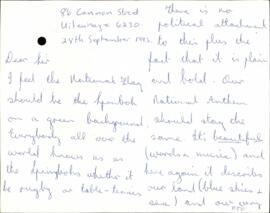 86 Cannon Street
Uitenhage 6230.
28th September 1992.
Dear Sir
I feel the National Flag
should be the Springbok
on a green background.
Everybody all over the
world knows us as
the Springboks whether it
be rugby or table-tennis
There is no
political attachment
to this plus the
fact that it is plain
and bold. Our
National Anthem
should stay the
same. It's beautiful
(words & music) and
here again it describes
our land (blue skies &
sea) and our way
PTO